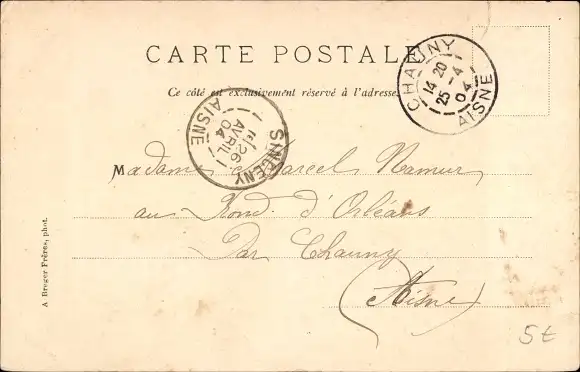 CARTE POSTALE
Ce côté est exclusivement réservé à l'adresse.
CHAUNY
14 20
25 -4
04
AISNE
SINCENY
1E
26
AVRIL
04
AISNE
Madame Marcel Namur
au Rond. d'Orléans
Par Chauny
(Aisne)
A Breger Frères, phot.
5t